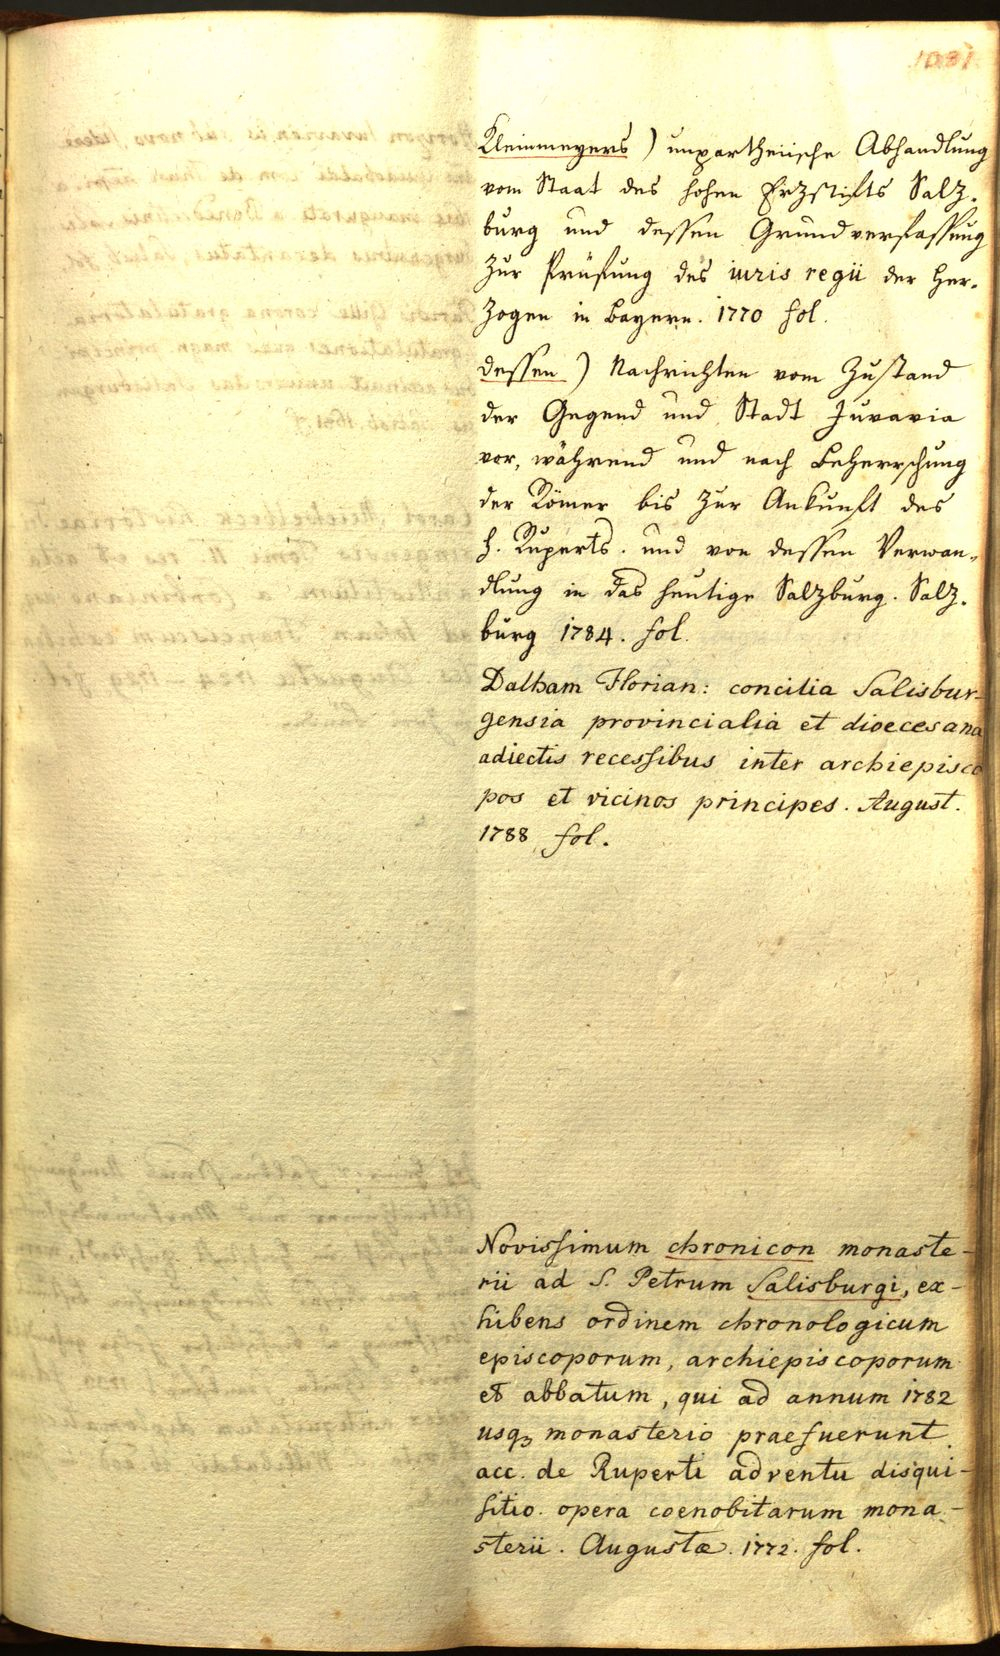 1031
Kleinmeyers) unpartheiische Abhandlung
vom Staat des hohen Erzstifts Salz-
burg und dessen Grundverfassung
zur Prüfung des iuris regii der Her-
zogen in Bayern. 1770 fol.
dessen) Nachrichten vom Zustand
der Gegend und Stadt Juvavia
vor, während und nach Beherrschung
der Römer bis zur Ankunft des
h. Ruperts. und von dessen Verwan-
dlung in das heutige Salzburg. Salz-
burg 1784. fol.
Dalham Florian: concilia Salisbur-
gensia provincialia et dioecesana
adiectis recessibus inter archiepisco
pos et vicinos principes. August.
1788 fol.
Novissimum chronicon monaste-
rii ad S. Petrum Salisburgi, ex-
hibens ordinem chronologicum
episcoporum, archiepiscoporum
et abbatum, qui ad annum 1782
usq₃ monasterio praefuerunt
acc. de Ruperti adventu disqui-
sitio. opera coenobitarum mona-
sterii. Augustæ. 1772. fol.